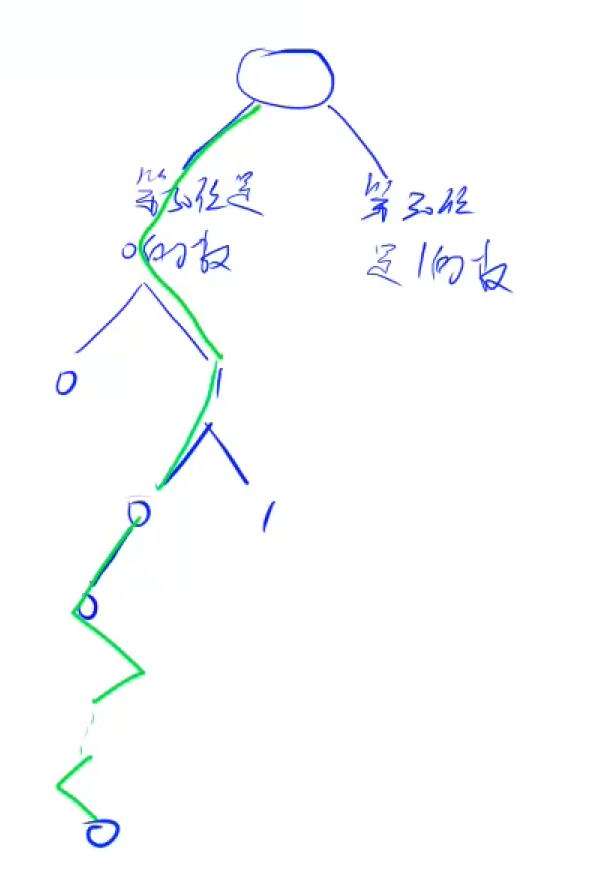 第30位是
0的数
第30位
是1的数
0
1
0
1
0
0